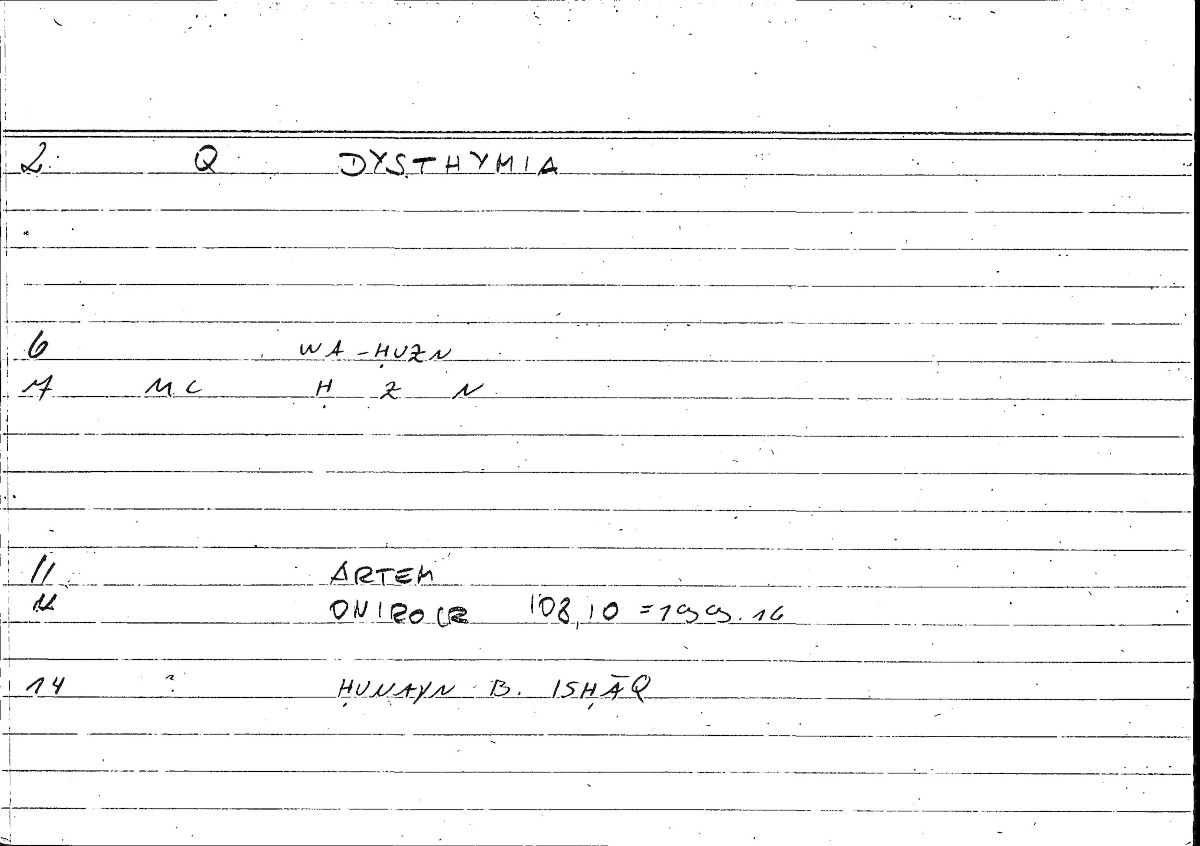 2 Q DYSTHYMIA
6 WA-ḤUZN
7 MC Ḥ Z N
11 ARTEM
12 ONIROCR 108,10 = 199.16
14 ? ḤUNAYN B. ISḤĀQ